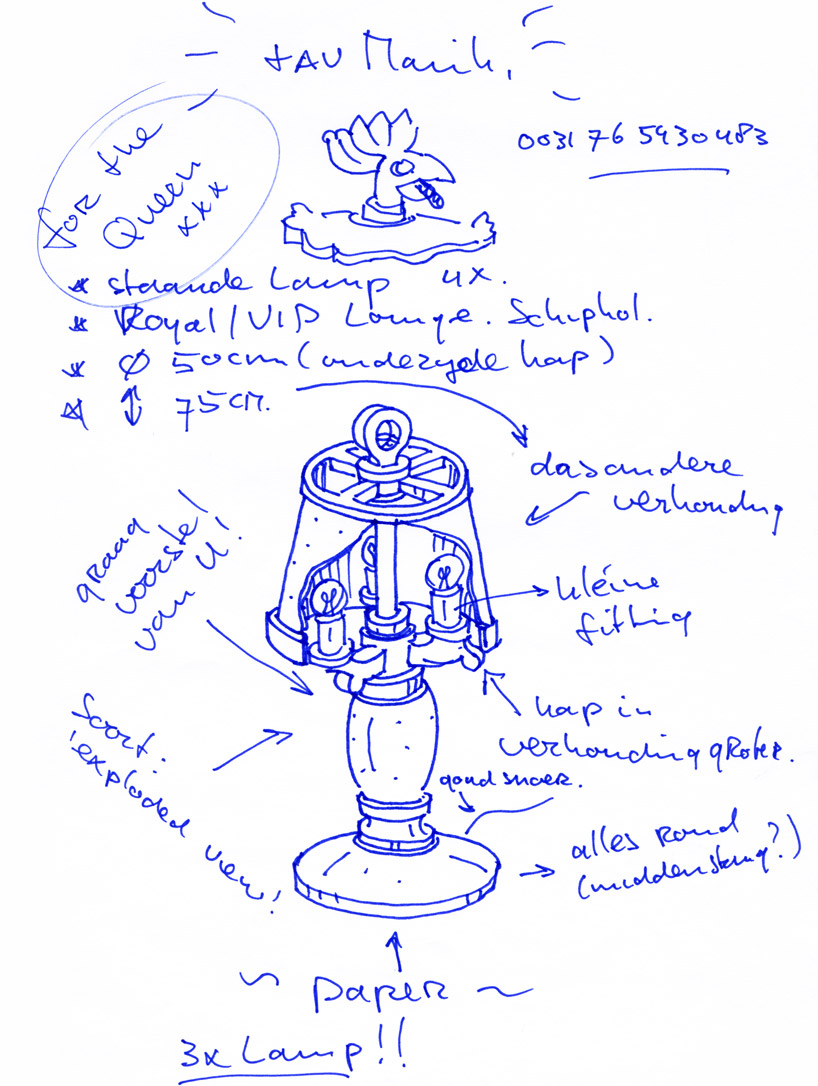 tAV Marik,
0031 76 5930483
for the
Queen
xxx
* staande Lamp 4x.
* Royal/VIP Lounge. Schiphol.
* Ø 50cm (onderzyde kap)
* ↕ 75cm.
dasandere
verhouding
graag
voorstel
van U!
kleine
fitting
kap in
verhouding groter.
Soort:
'exploded view!
goud snoer.
alles rond
(middenstang?)
~ Paper ~
3x Lamp!!